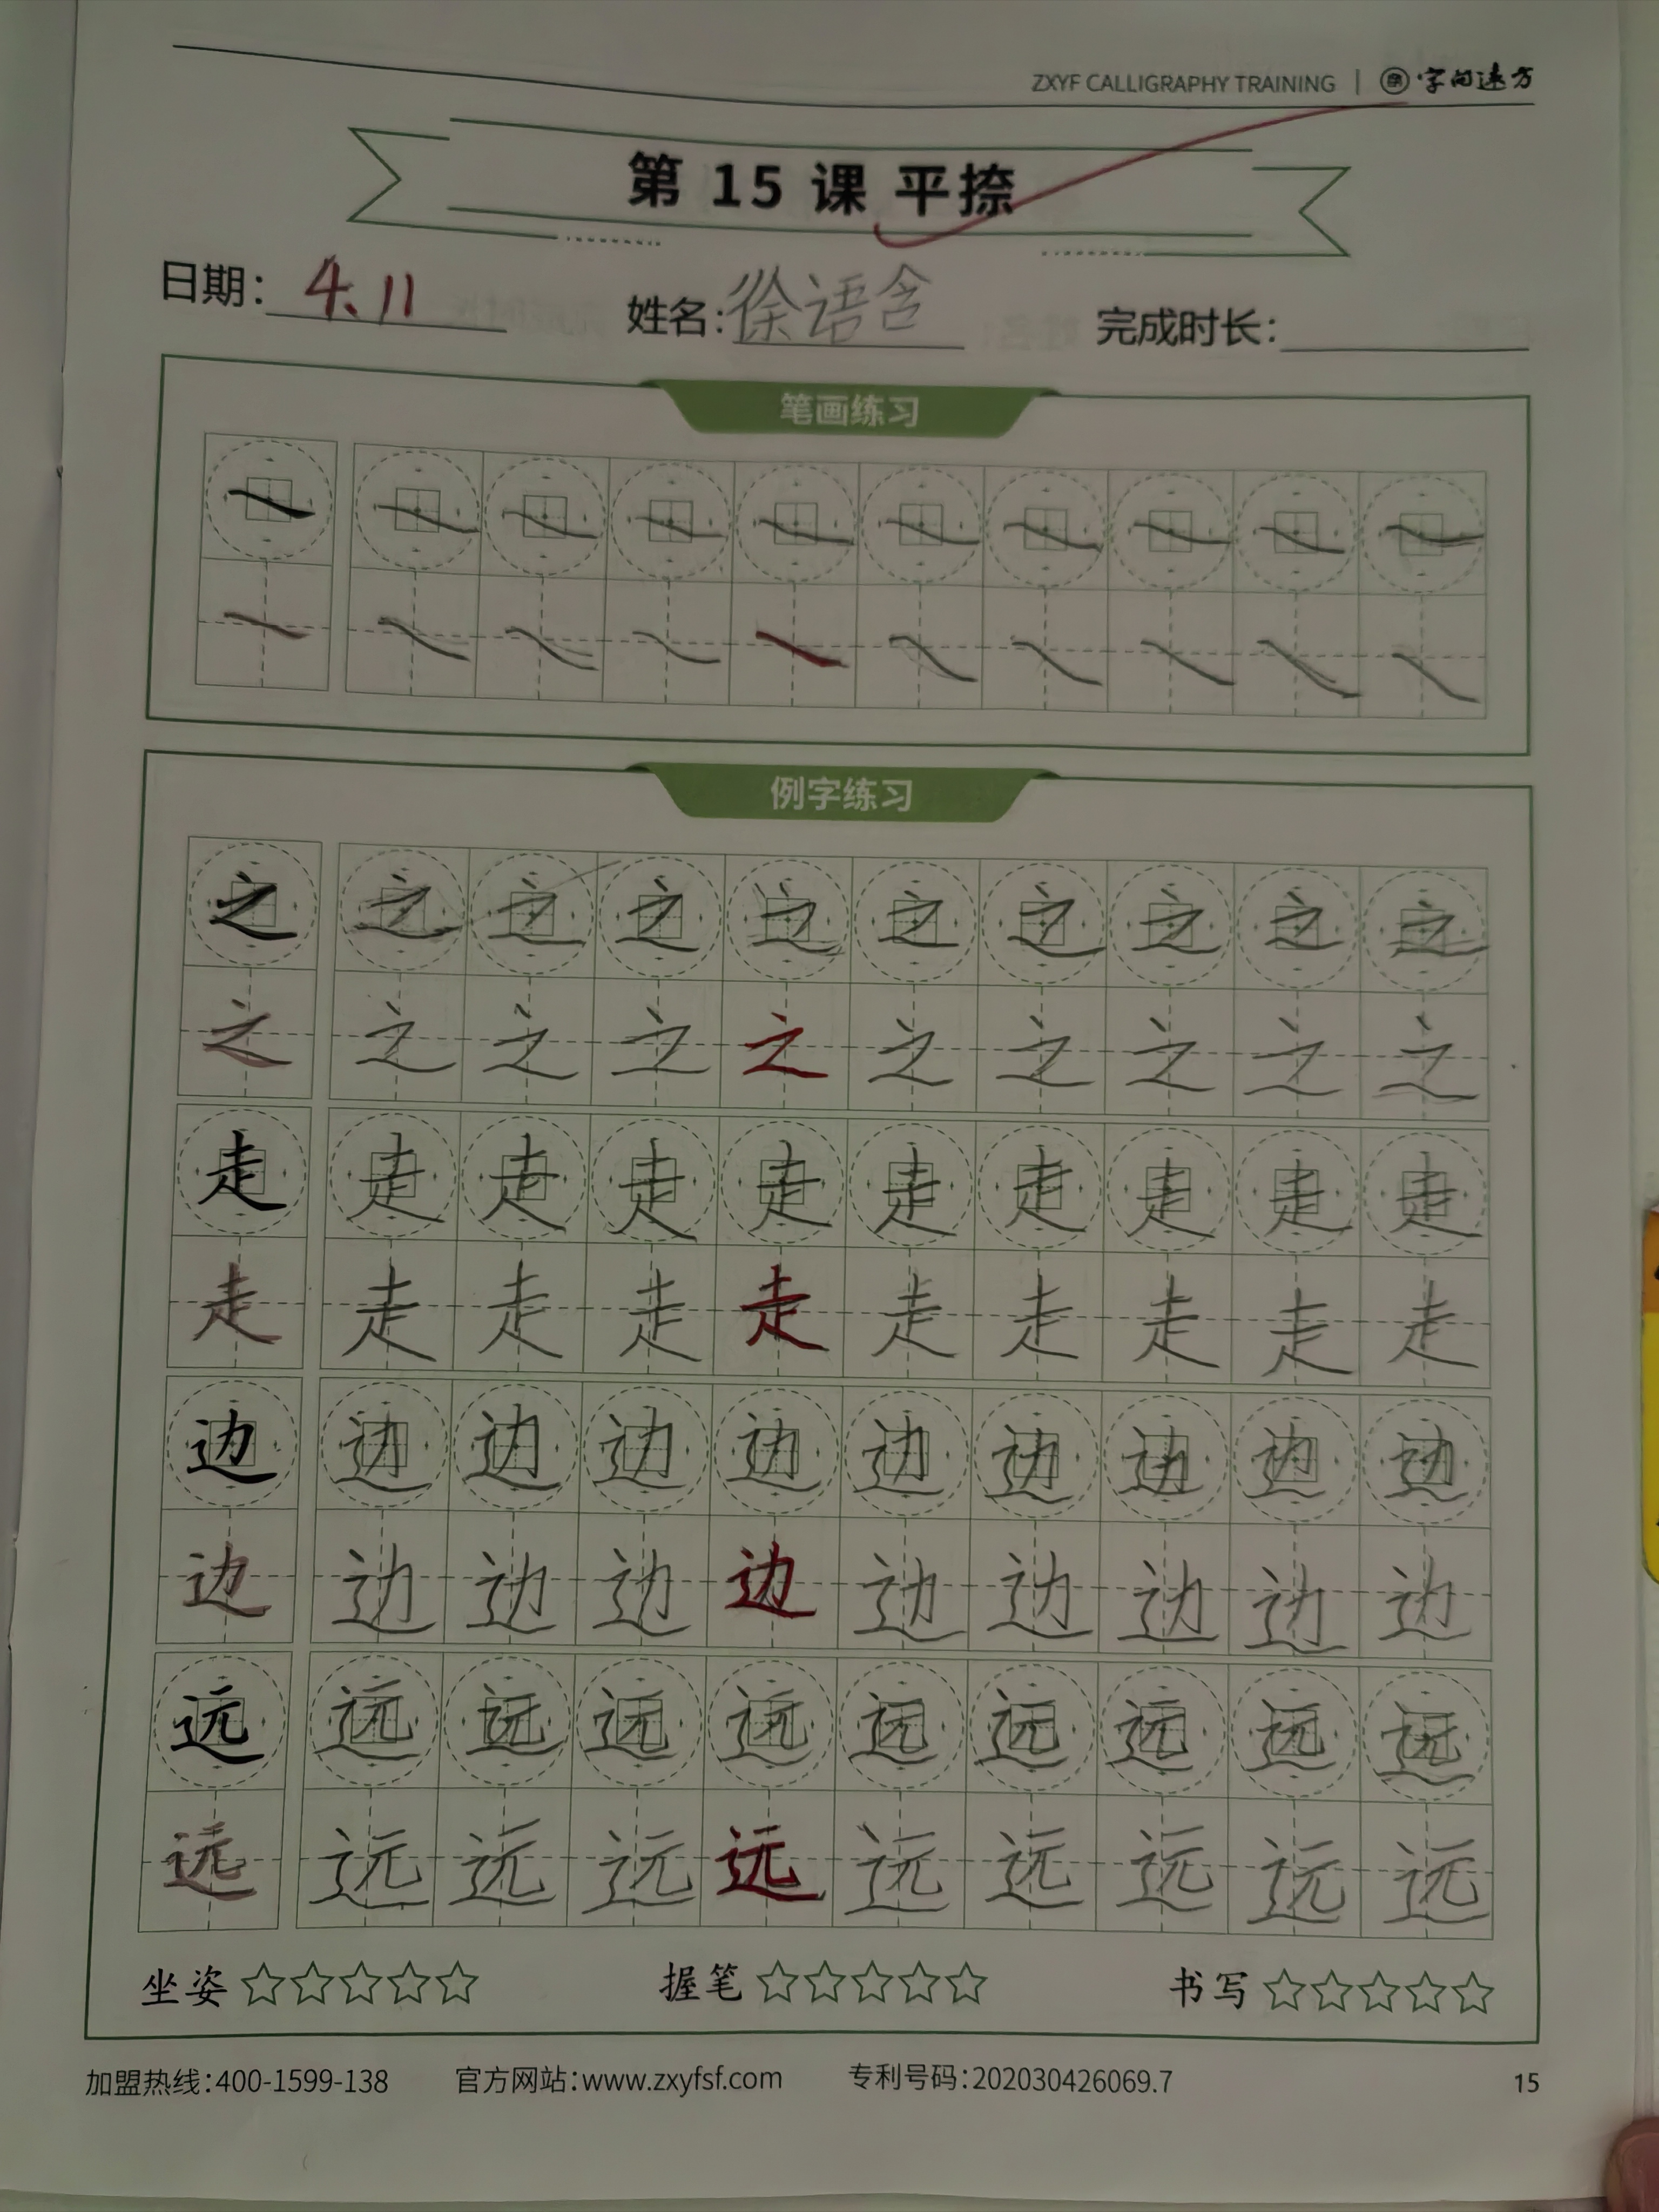 ZXYF CALLIGRAPHY TRAINING | 字向远方
第 15 课 平捺
日期: 4.11 姓名: 徐语含 完成时长:
笔画练习
例字练习
之 之 之 之 之 之 之 之 之 之
之 之 之 之 之 之 之 之 之 之
走 走 走 走 走 走 走 走 走 走
走 走 走 走 走 走 走 走 走 走
边 边 边 边 边 边 边 边 边 边
边 边 边 边 边 边 边 边 边 边
远 远 远 远 远 远 远 远 远 远
远 远 远 远 远 远 远 远 远 远
坐姿 ☆☆☆☆☆ 握笔 ☆☆☆☆☆ 书写 ☆☆☆☆☆
加盟热线:400-1599-138 官方网站:www.zxyfsf.com 专利号码:202030426069.7 15